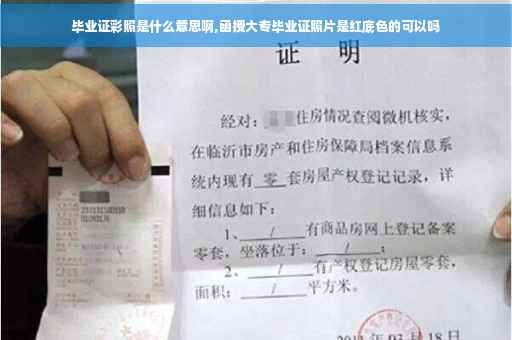 毕业证彩照是什么意思啊,函授大专毕业证照片是红底色的可以吗
证 明
经对：住房情况查阅微机核实，
在临沂市房产和住房保障局档案信息系
统内现有 零 套房屋产权登记记录，详
细信息如下：
1、 / 有商品房网上登记备案
零套，坐落位于： / ；
2、 / 有产权登记房屋零套，
面积： / 平方米。
03 月 18 日